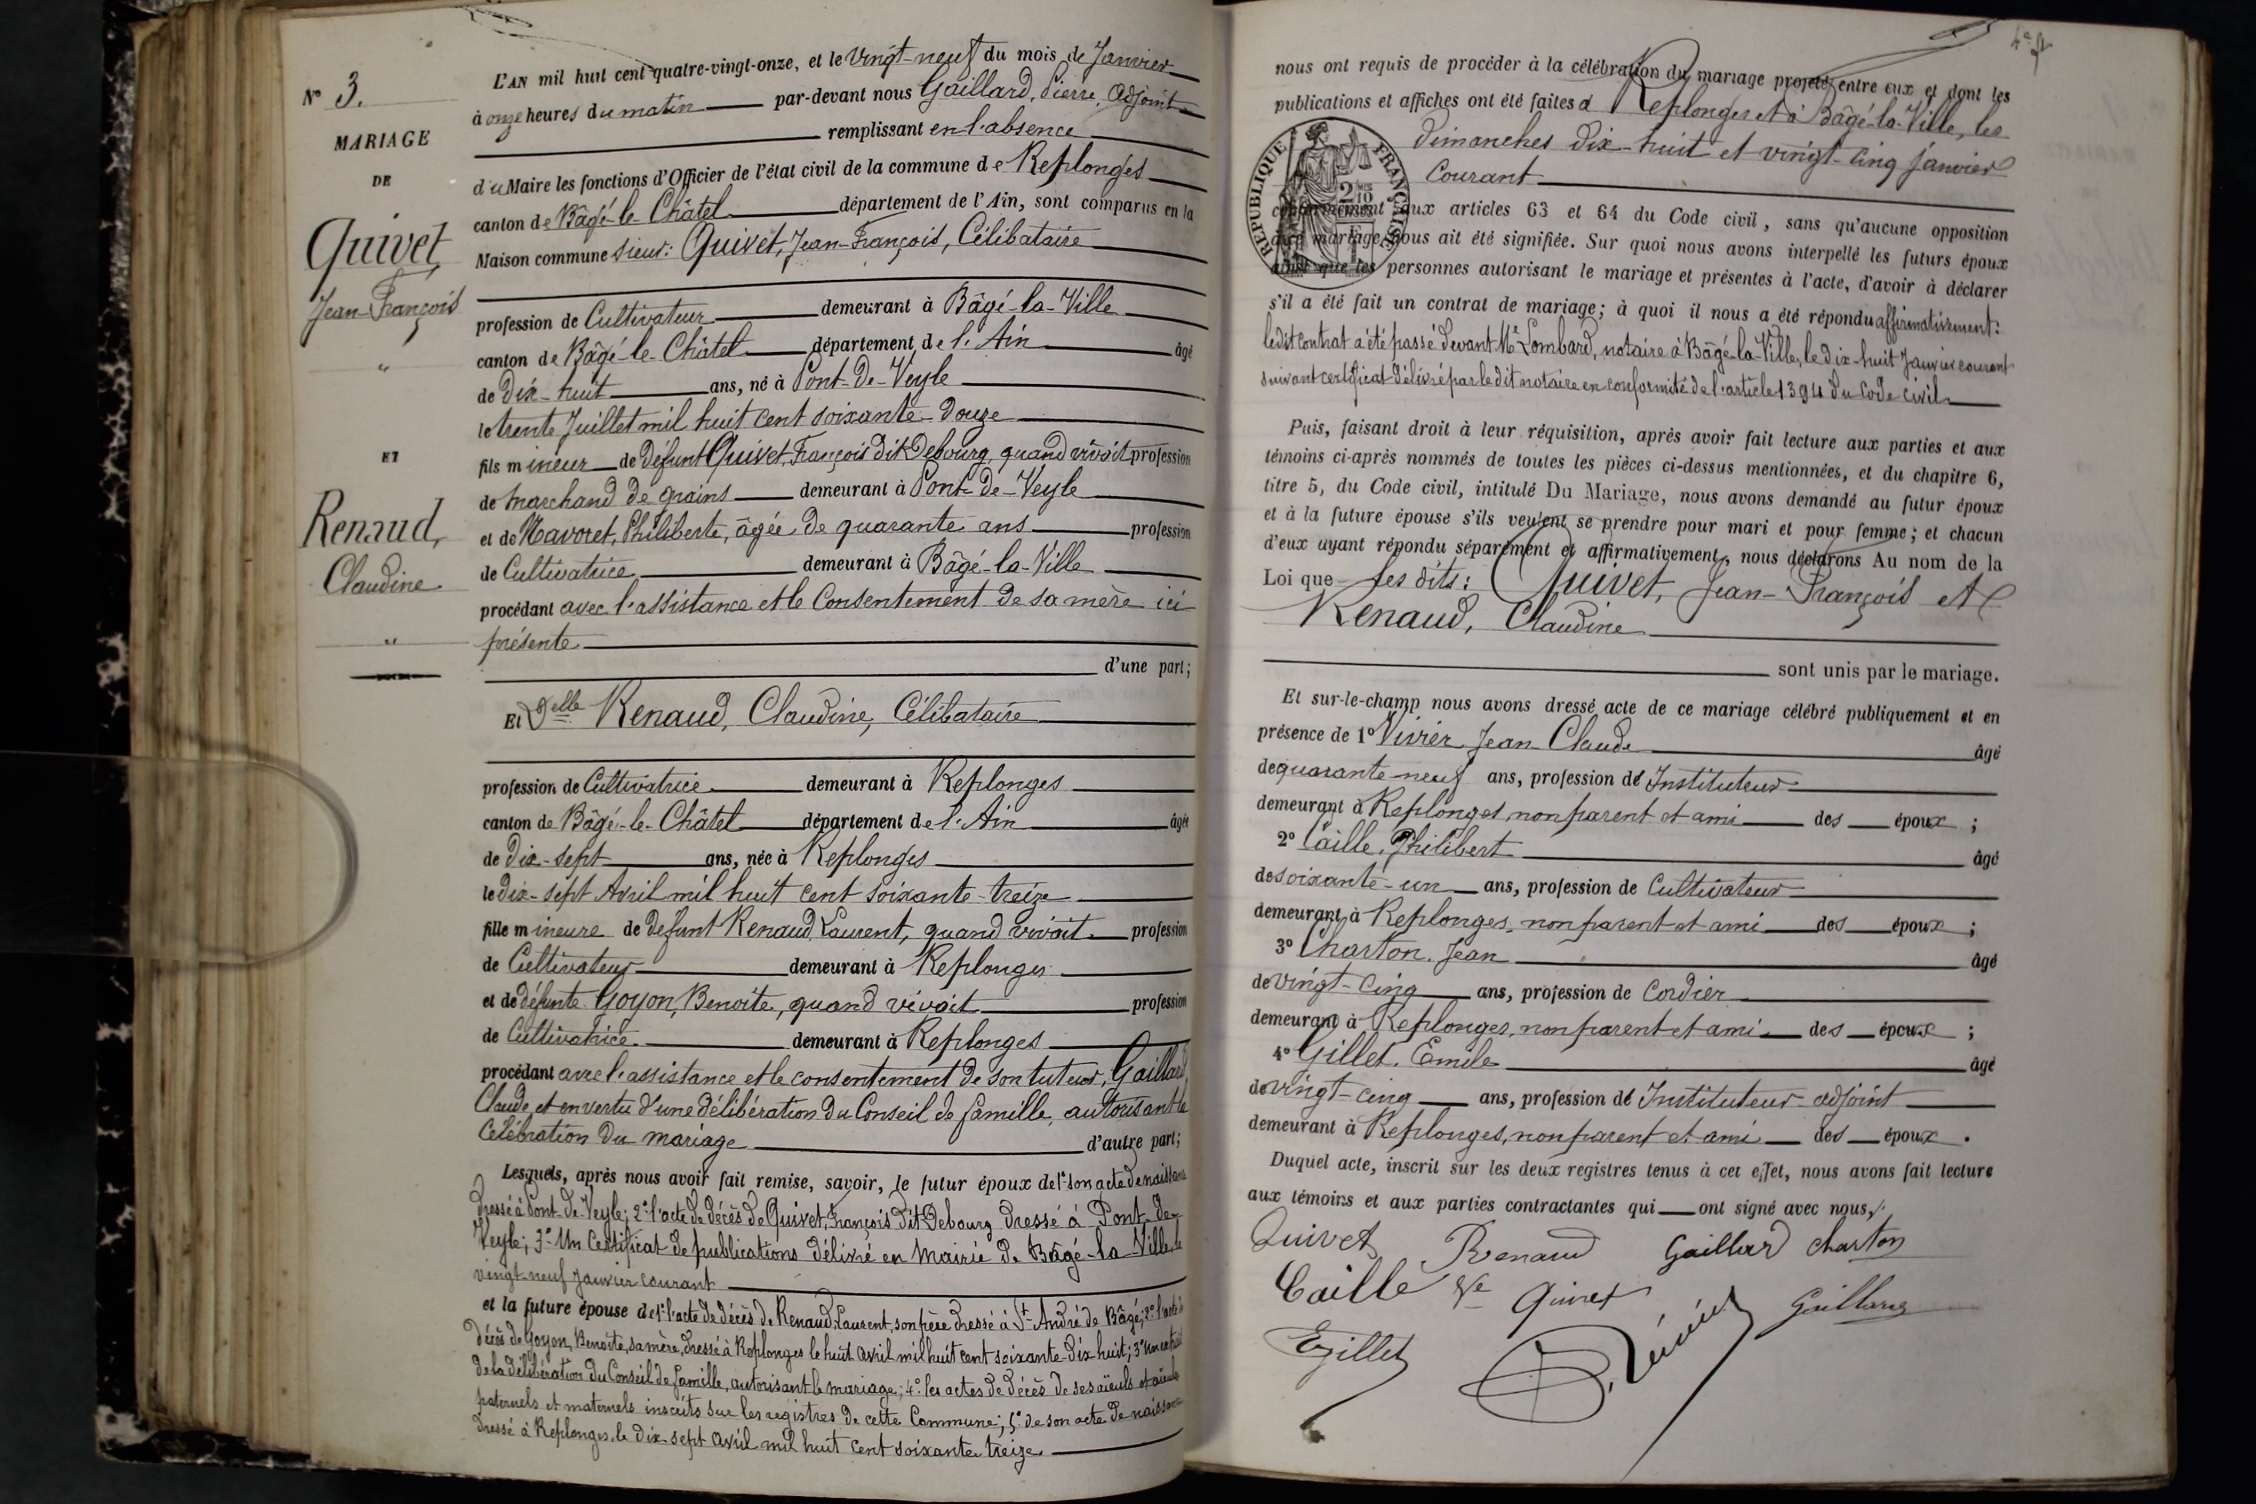 N° 3.
MARIAGE
DE
Quivet,
Jean-François
"
ET
Renaud,
Claudine
"
L'AN mil huit cent quatre-vingt-onze, et le vingt-neuf du mois de Janvier
à onze heures du matin par-devant nous Gaillard, Pierre, Adjoint
remplissant en l'absence
du Maire les fonctions d'Officier de l'état civil de la commune de Replonges
canton de Bâgé-le-Châtel département de l'Ain, sont comparus en la
Maison commune sieur: Quivet, Jean-François, Célibataire
profession de Cultivateur demeurant à Bâgé-la-Ville
canton de Bâgé-le-Châtel département de l'Ain âgé
de Dix-huit ans, né à Pont-de-Veyle
le trente Juillet mil huit cent soixante-douze
fils mineur de défunt Quivet, François dit Debourg, quand vivait profession
de marchand de grains demeurant à Pont-de-Veyle
et de Mavoret, Philiberte, âgée de quarante ans profession
de Cultivatrice demeurant à Bâgé-la-Ville
procédant avec l'assistance et le Consentement de sa mère ici
présente
d'une part;
Et Delle Renaud, Claudine, Célibataire
profession de Cultivatrice demeurant à Replonges
canton de Bâgé-le-Châtel département de l'Ain âgée
de dix-sept ans, née à Replonges
le dix-sept Avril mil huit cent soixante-treize
fille mineure de défunt Renaud, Laurent, quand vivait profession
de Cultivateur demeurant à Replonges
et de défunte Goyon, Benoite, quand vivait profession
de Cultivatrice demeurant à Replonges
procédant avec l'assistance et le consentement de son tuteur, Gaillard
Claude et en vertu d'une délibération du Conseil de famille, autorisant la
Célébration du mariage d'autre part;
Lesquels, après nous avoir fait remise, savoir, le futur époux de 1° son acte de naissance
dressé à Pont-de-Veyle; 2° l'acte de décès de Quivet, François dit Debourg dressé à Pont-de-
Veyle; 3° Un Certificat de publications délivré en Mairie de Bâgé-la-Ville le
vingt-neuf Janvier courant
et la future épouse de 1° l'acte de décès de Renaud Laurent, son père dressé à St André de Bâgé; 2° l'acte de
décès de Goyon, Benoite, sa mère, dressé à Replonges le huit avril mil huit cent soixante-dix huit; 3° un extrait
de la délibération du Conseil de famille, autorisant le mariage; 4° les actes de décès de ses aïeuls et aïeules
paternels et maternels inscrits sur les registres de cette Commune; 5° de son acte de naissance
dressé à Replonges le dix-sept avril mil huit cent soixante treize
nous ont requis de procéder à la célébration du mariage projeté entre eux et dont les
publications et affiches ont été faites à Replonges et à Bâgé-la-Ville, les
dimanches dix-huit et vingt-cinq janvier
courant
RÉPUBLIQUE FRANÇAISE
conformément aux articles 63 et 64 du Code civil, sans qu'aucune opposition
au mariage nous ait été signifiée. Sur quoi nous avons interpellé les futurs époux
ainsi que les personnes autorisant le mariage et présentes à l'acte, d'avoir à déclarer
s'il a été fait un contrat de mariage; à quoi il nous a été répondu affirmativement:
ledit contrat a été passé devant Me Lombard, notaire à Bâgé-la-Ville, le dix-huit Janvier courant
suivant certificat délivré par le dit notaire en conformité de l'article 1394 du Code civil.
Puis, faisant droit à leur réquisition, après avoir fait lecture aux parties et aux
témoins ci-après nommés de toutes les pièces ci-dessus mentionnées, et du chapitre 6,
titre 5, du Code civil, intitulé Du Mariage, nous avons demandé au futur époux
et à la future épouse s'ils veulent se prendre pour mari et pour femme; et chacun
d'eux ayant répondu séparément et affirmativement, nous déclarons Au nom de la
Loi que les dits: Quivet, Jean-François et
Renaud, Claudine
sont unis par le mariage.
Et sur-le-champ nous avons dressé acte de ce mariage célébré publiquement et en
présence de 1° Vivier Jean Claude âgé
de quarante-neuf ans, profession de Instituteur
demeurant à Replonges, non parent et ami des époux;
2° Caille, Philibert âgé
de soixante-un ans, profession de Cultivateur
demeurant à Replonges, non parent et ami des époux;
3° Charton, Jean âgé
de vingt-cinq ans, profession de Cordier
demeurant à Replonges, non parent et ami des époux;
4° Gillet, Emile âgé
de vingt-cinq ans, profession de Instituteur-adjoint
demeurant à Replonges, non parent et ami des époux.
Duquel acte, inscrit sur les deux registres tenus à cet effet, nous avons fait lecture
aux témoins et aux parties contractantes qui ont signé avec nous.
Quivet Renaud Gaillard Charton
Caille Ve Quivet Gaillard
E Gillet Vivier